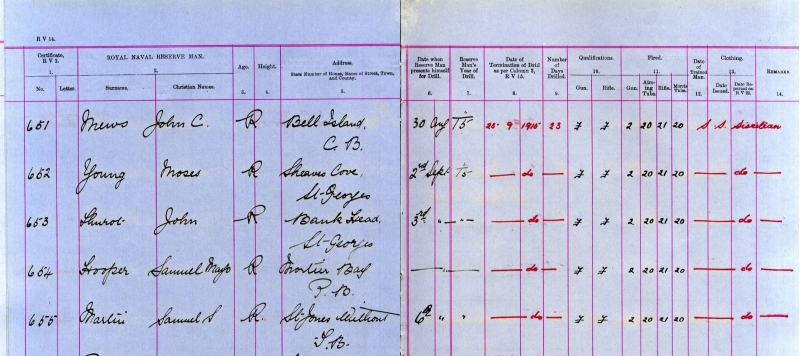 R V 14.
Certificate, R V 2. ROYAL NAVAL RESERVE MAN. Age. Height. Address. State Number of House, Name of Street, Town, and County. Date when Reserve Man presents himself for Drill. Reserve Man's Year of Drill. Date of Termination of Drill as per Column 3, R V 15. Number of Days Drilled. Qualifications. Fired. Date of Trained Man. Clothing. REMARKS.
1. 2. 3. 4. 5. 6. 7. 8. 9. 10. 11. 12. 13. 14.
No. Letter. Surname. Christian Names. Gun. Rifle. Gun. Aiming Tube. Rifle. Morris Tube. Date Issued.
651 Mews John C. R Bell Island, 30 Aug 15 25 9 1915 23 7 7 2 20 21 20 S. S.
C. B.
652 Young Moses R Sheaves Cove, 2nd Sept 15 — do — 7 7 2 20 21 20 — do —
St Georges
653 John R Bank Head, 3rd " — " — — do — 7 7 2 20 21 20 — do —
St Georges
654 Hooper Samuel R Mortier Bay — " — — do — 7 7 2 20 21 20 — do —
P. B.
655 Martin Samuel S R. St Jones Without 6th " " — do — 7 7 2 20 21 20 — do —
T. B.